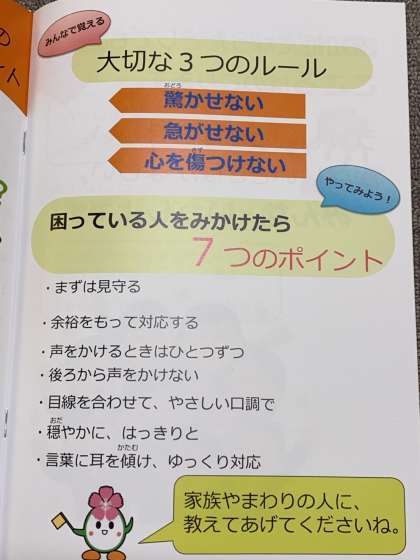 みんなで覚える
大切な３つのルール
おどろ
驚かせない
急がせない
きず
心を傷つけない
やってみよう！
困っている人をみかけたら
７つのポイント
・まずは見守る
・余裕をもって対応する
・声をかけるときはひとつずつ
・後ろから声をかけない
・目線を合わせて、やさしい口調で
おだ
・穏やかに、はっきりと
かたむ
・言葉に耳を傾け、ゆっくり対応
家族やまわりの人に、
教えてあげてくださいね。